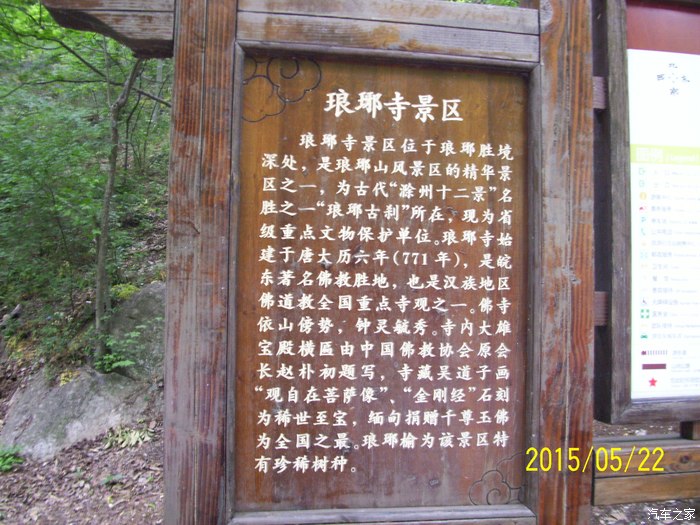 琅琊寺景区
琅琊寺景区位于琅琊胜境
深处，是琅琊山风景区的精华景
区之一，为古代“滁州十二景”名
胜之一“琅琊古刹”所在，现为省
级重点文物保护单位。琅琊寺始
建于唐大历六年(771年)，是皖
东著名佛教胜地，也是汉族地区
佛道教全国重点寺观之一。佛寺
依山傍势，钟灵毓秀。寺内大雄
宝殿横匾由中国佛教协会原会
长赵朴初题写，寺藏吴道子画
“观自在菩萨像”、“金刚经”石刻
为稀世至宝，缅甸捐赠千尊玉佛
为全国之最。琅琊榆为该景区特
有珍稀树种。
2015/05/22
汽车之家